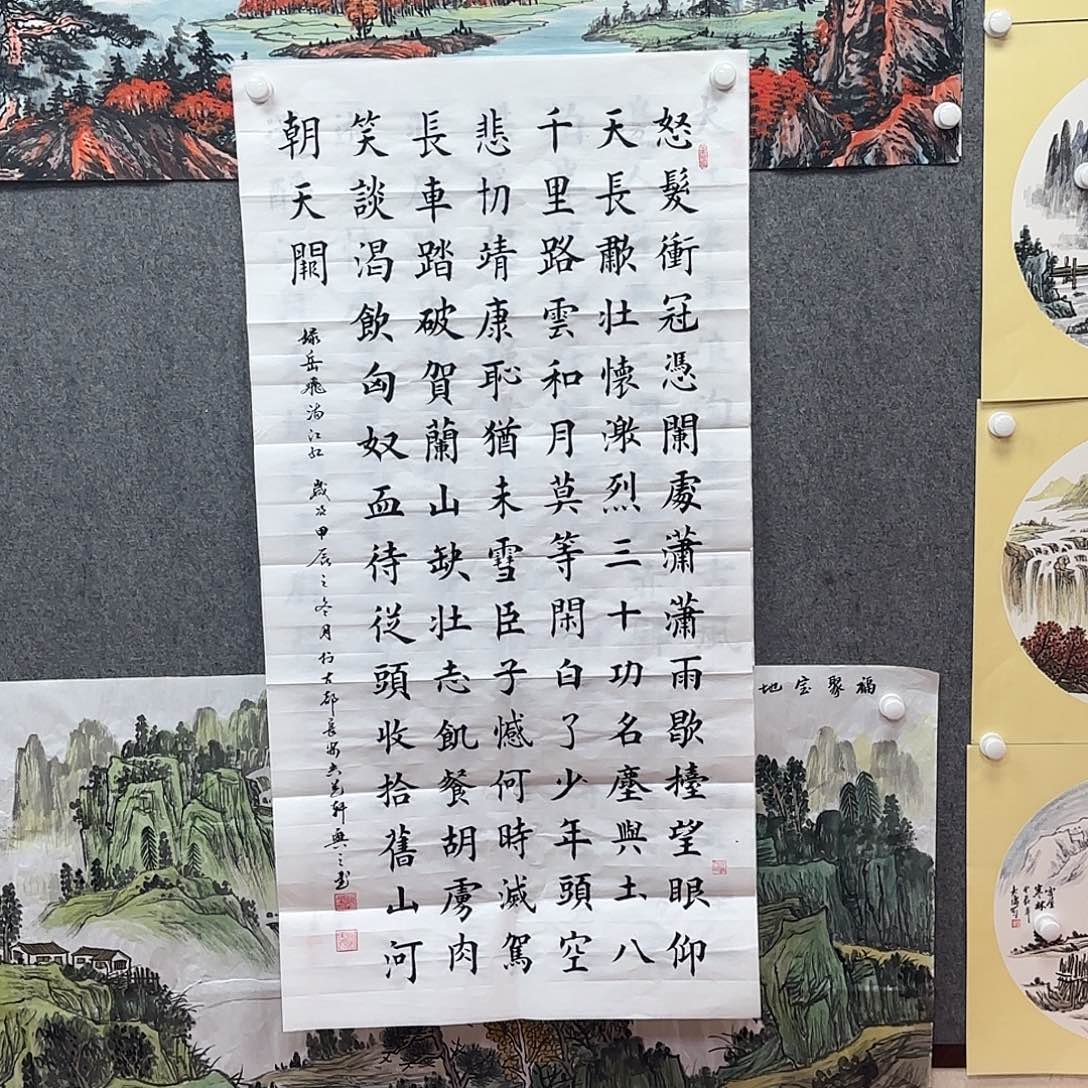 怒髮衝冠憑闌處瀟瀟雨歇擡望眼仰
天長歗壯懷激烈三十功名塵與土八
千里路雲和月莫等閑白了少年頭空
悲切靖康恥猶未雪臣子憾何時滅駕
長車踏破賀蘭山缺壯志飢餐胡虜肉
笑談渴飲匈奴血待從頭收拾舊山河
朝天闕
録岳飛滿江紅 歲次甲辰之冬月於古都長安軒興之書
福聚宝地